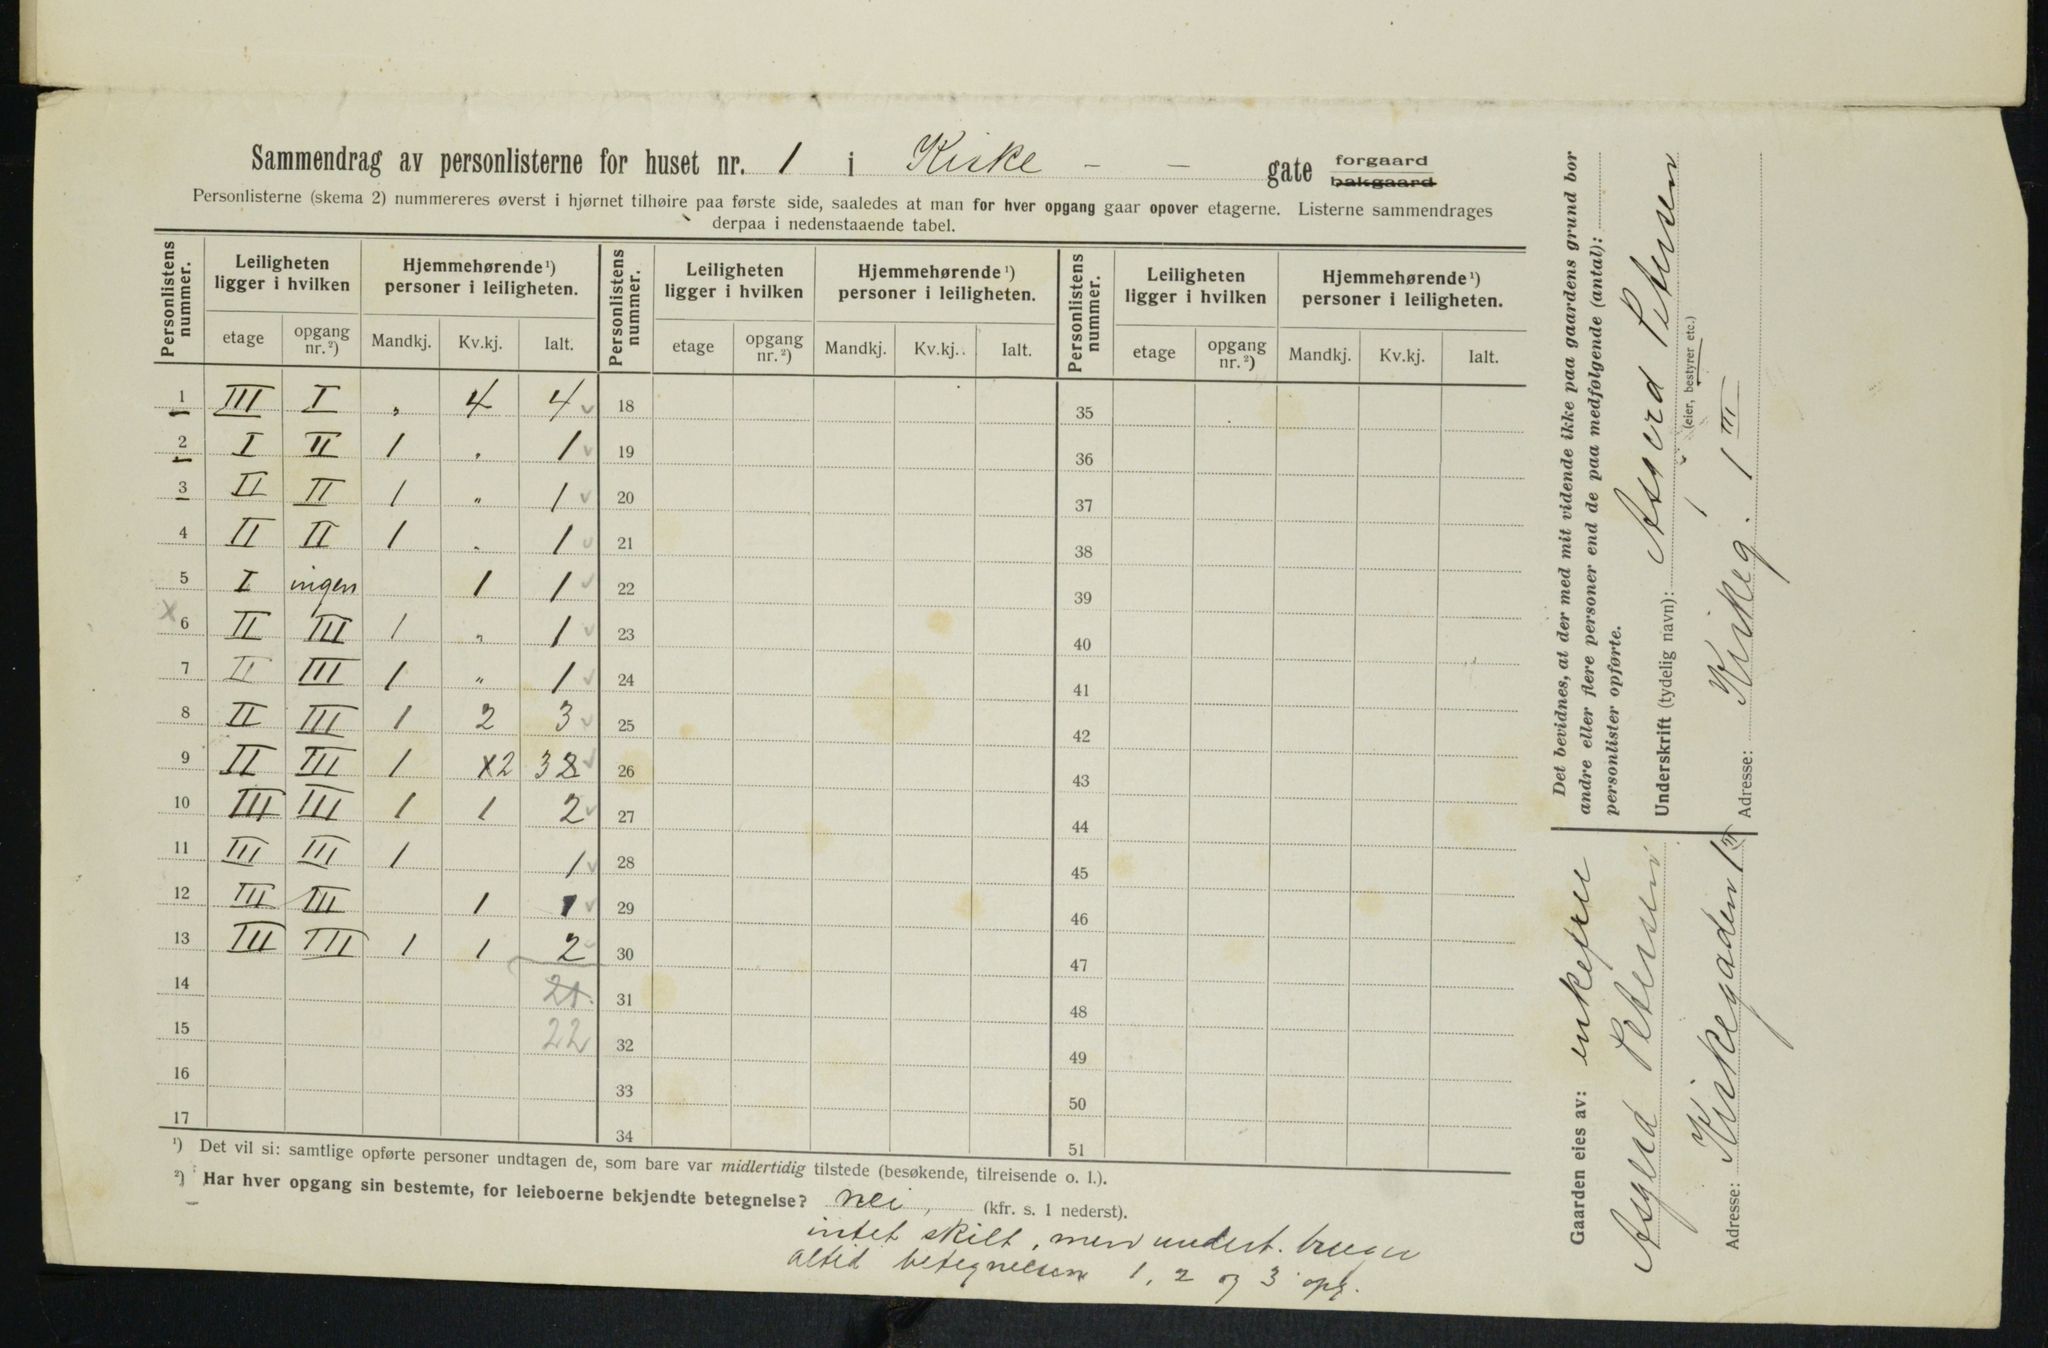 Sammendrag av personlisterne for huset nr. 1 i Kirke - - gate forgaard bakgaard
Personlisterne (skema 2) nummereres øverst i hjørnet tilhøire paa første side, saaledes at man for hver opgang gaar opover etagerne. Listerne sammendrages
derpaa i nedenstaaende tabel.
Personlistens nummer. Leiligheten ligger i hvilken Hjemmehørende ¹) personer i leiligheten. Personlistens nummer. Leiligheten ligger i hvilken Hjemmehørende ¹) personer i leiligheten. Personlistens nummer. Leiligheten ligger i hvilken Hjemmehørende ¹) personer i leiligheten.
etage opgang nr. ²) Mandkj. Kv.kj. Ialt. etage opgang nr. ²) Mandkj. Kv.kj. Ialt. etage opgang nr. ²) Mandkj. Kv.kj. Ialt.
1 III I „ 4 4 18 35
2 I II 1 „ 1 19 36
3 II II 1 „ 1 20 37
4 II II 1 „ 1 21 38
5 I ingen 1 1 22 39
x 6 II III 1 „ 1 23 40
7 II III 1 „ 1 24 41
8 II III 1 2 3 25 42
9 II III 1 x2 3 2 26 43
10 III III 1 1 2 27 44
11 III III 1 1 28 45
12 III III 1 1 29 46
13 III III 1 1 2 30 47
14 21. 31 48
15 22 32 49
16 33 50
17 34 51
¹) Det vil si: samtlige opførte personer undtagen de, som bare var midlertidig tilstede (besøkende, tilreisende o. l.).
²) Har hver opgang sin bestemte, for leieboerne bekjendte betegnelse? nei, (kfr. s. 1 nederst).
intet skilt, men undert. bruger
altid betegnelsen 1, 2 og 3 opg.
Det bevidnes, at der med mit vidende ikke paa gaardens grund bor
andre eller flere personer end de paa medfølgende (antal):
personlister opførte.
Underskrift (tydelig navn): Petersen
(eier, bestyrer etc.)
Adresse: Kirkeg. 1 III
Gaarden eies av: enkefru
Petersen
Adresse: Kirkegaden 1 III